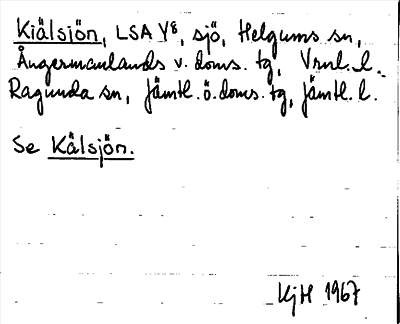 Kiälsjön, LSA Y8, sjö, Helgums sn,
Ångermanlands v. doms. tg, Vrnl. l.
Ragunda sn, Jämtl. ö. doms. tg, Jämtl. l.
Se Kälsjön.
KjH 1967